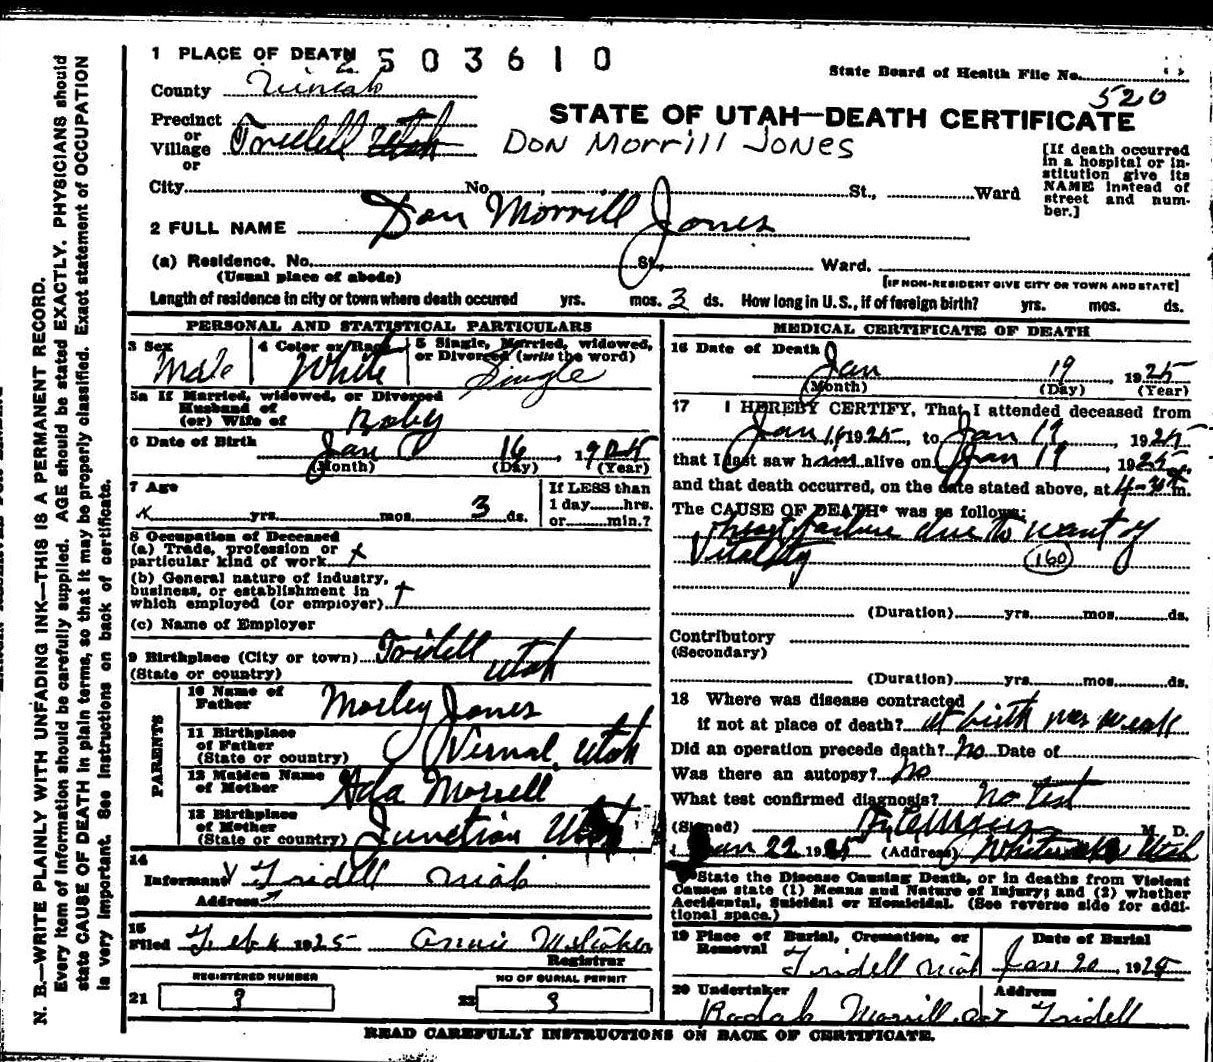 1 PLACE OF DEATH
2503610
State Board of Health File No.
520
County
STATE OF UTAH—DEATH CERTIFICATE
Precinct
or
Village Tridell Utah
or
Don Morrill Jones
[If death occurred
in a hospital or in-
stitution give its
NAME instead of
street and num-
ber.]
City No. St., Ward
2 FULL NAME Don Morrill Jones
(a) Residence. No. St., Ward.
(Usual place of abode)
[IF NON-RESIDENT GIVE CITY OR TOWN AND STATE]
Length of residence in city or town where death occured yrs. mos. 3 ds. How long in U.S., if of foreign birth? yrs. mos. ds.
PERSONAL AND STATISTICAL PARTICULARS
3 Sex
Male
4 Color or Race
White
5 Single, Married, widowed,
or Divorced (write the word)
Single
5a If Married, widowed, or Divorced
Husband of
(or) Wife of Baby
6 Date of Birth Jan 16, 1925
(Month) (Day) (Year)
7 Age
x yrs. mos. 3 ds.
If LESS than
1 day hrs.
or min.?
8 Occupation of Deceased
(a) Trade, profession or
particular kind of work x
(b) General nature of industry,
business, or establishment in
which employed (or employer)
(c) Name of Employer
9 Birthplace (City or town) Tridell
(State or country) Utah
PARENTS
10 Name of
Father Morley Jones
11 Birthplace
of Father
(State or country) Vernal, Utah
12 Maiden Name
of Mother Ada Morrell
13 Birthplace
of Mother
(State or country) Junction Utah
14
Informant Tridell Utah
Address
15
Filed Feb 1925 Annie McStoker
Registrar
REGISTERED NUMBER
21 3
NO OF BURIAL PERMIT
22 3
MEDICAL CERTIFICATE OF DEATH
16 Date of Death
Jan 19, 1925
(Month) (Day) (Year)
17 I HEREBY CERTIFY, That I attended deceased from
Jan 1925, to Jan 19, 1925
that I last saw him alive on Jan 19 1925
and that death occurred, on the date stated above, at m.
The CAUSE OF DEATH* was as follows:
heart failure due to want of
Vitality
160
(Duration) yrs. mos. ds.
Contributory
(Secondary)
(Duration) yrs. mos. ds.
18 Where was disease contracted
if not at place of death? at birth was weak
Did an operation precede death? No Date of
Was there an autopsy? No
What test confirmed diagnosis? No test
(Signed) M. D.
Jan 22 1925 (Address) Whiterocks Utah
*State the Disease Causing Death, or in deaths from Violent
Causes state (1) Means and Nature of Injury; and (2) whether
Accidental, Suicidal or Homicidal. (See reverse side for addi-
tional space.)
19 Place of Burial, Cremation, or
Removal
Tridell Utah
Date of Burial
Jan 20, 1925
20 Undertaker Morrill
Address
Tridell
READ CAREFULLY INSTRUCTIONS ON BACK OF CERTIFICATE.
N. B.—WRITE PLAINLY WITH UNFADING INK—THIS IS A PERMANENT RECORD.
Every item of information should be carefully supplied. AGE should be stated EXACTLY. PHYSICIANS should
state CAUSE OF DEATH in plain terms, so that it may be properly classified. Exact statement of OCCUPATION
is very important. See instructions on back of certificate.